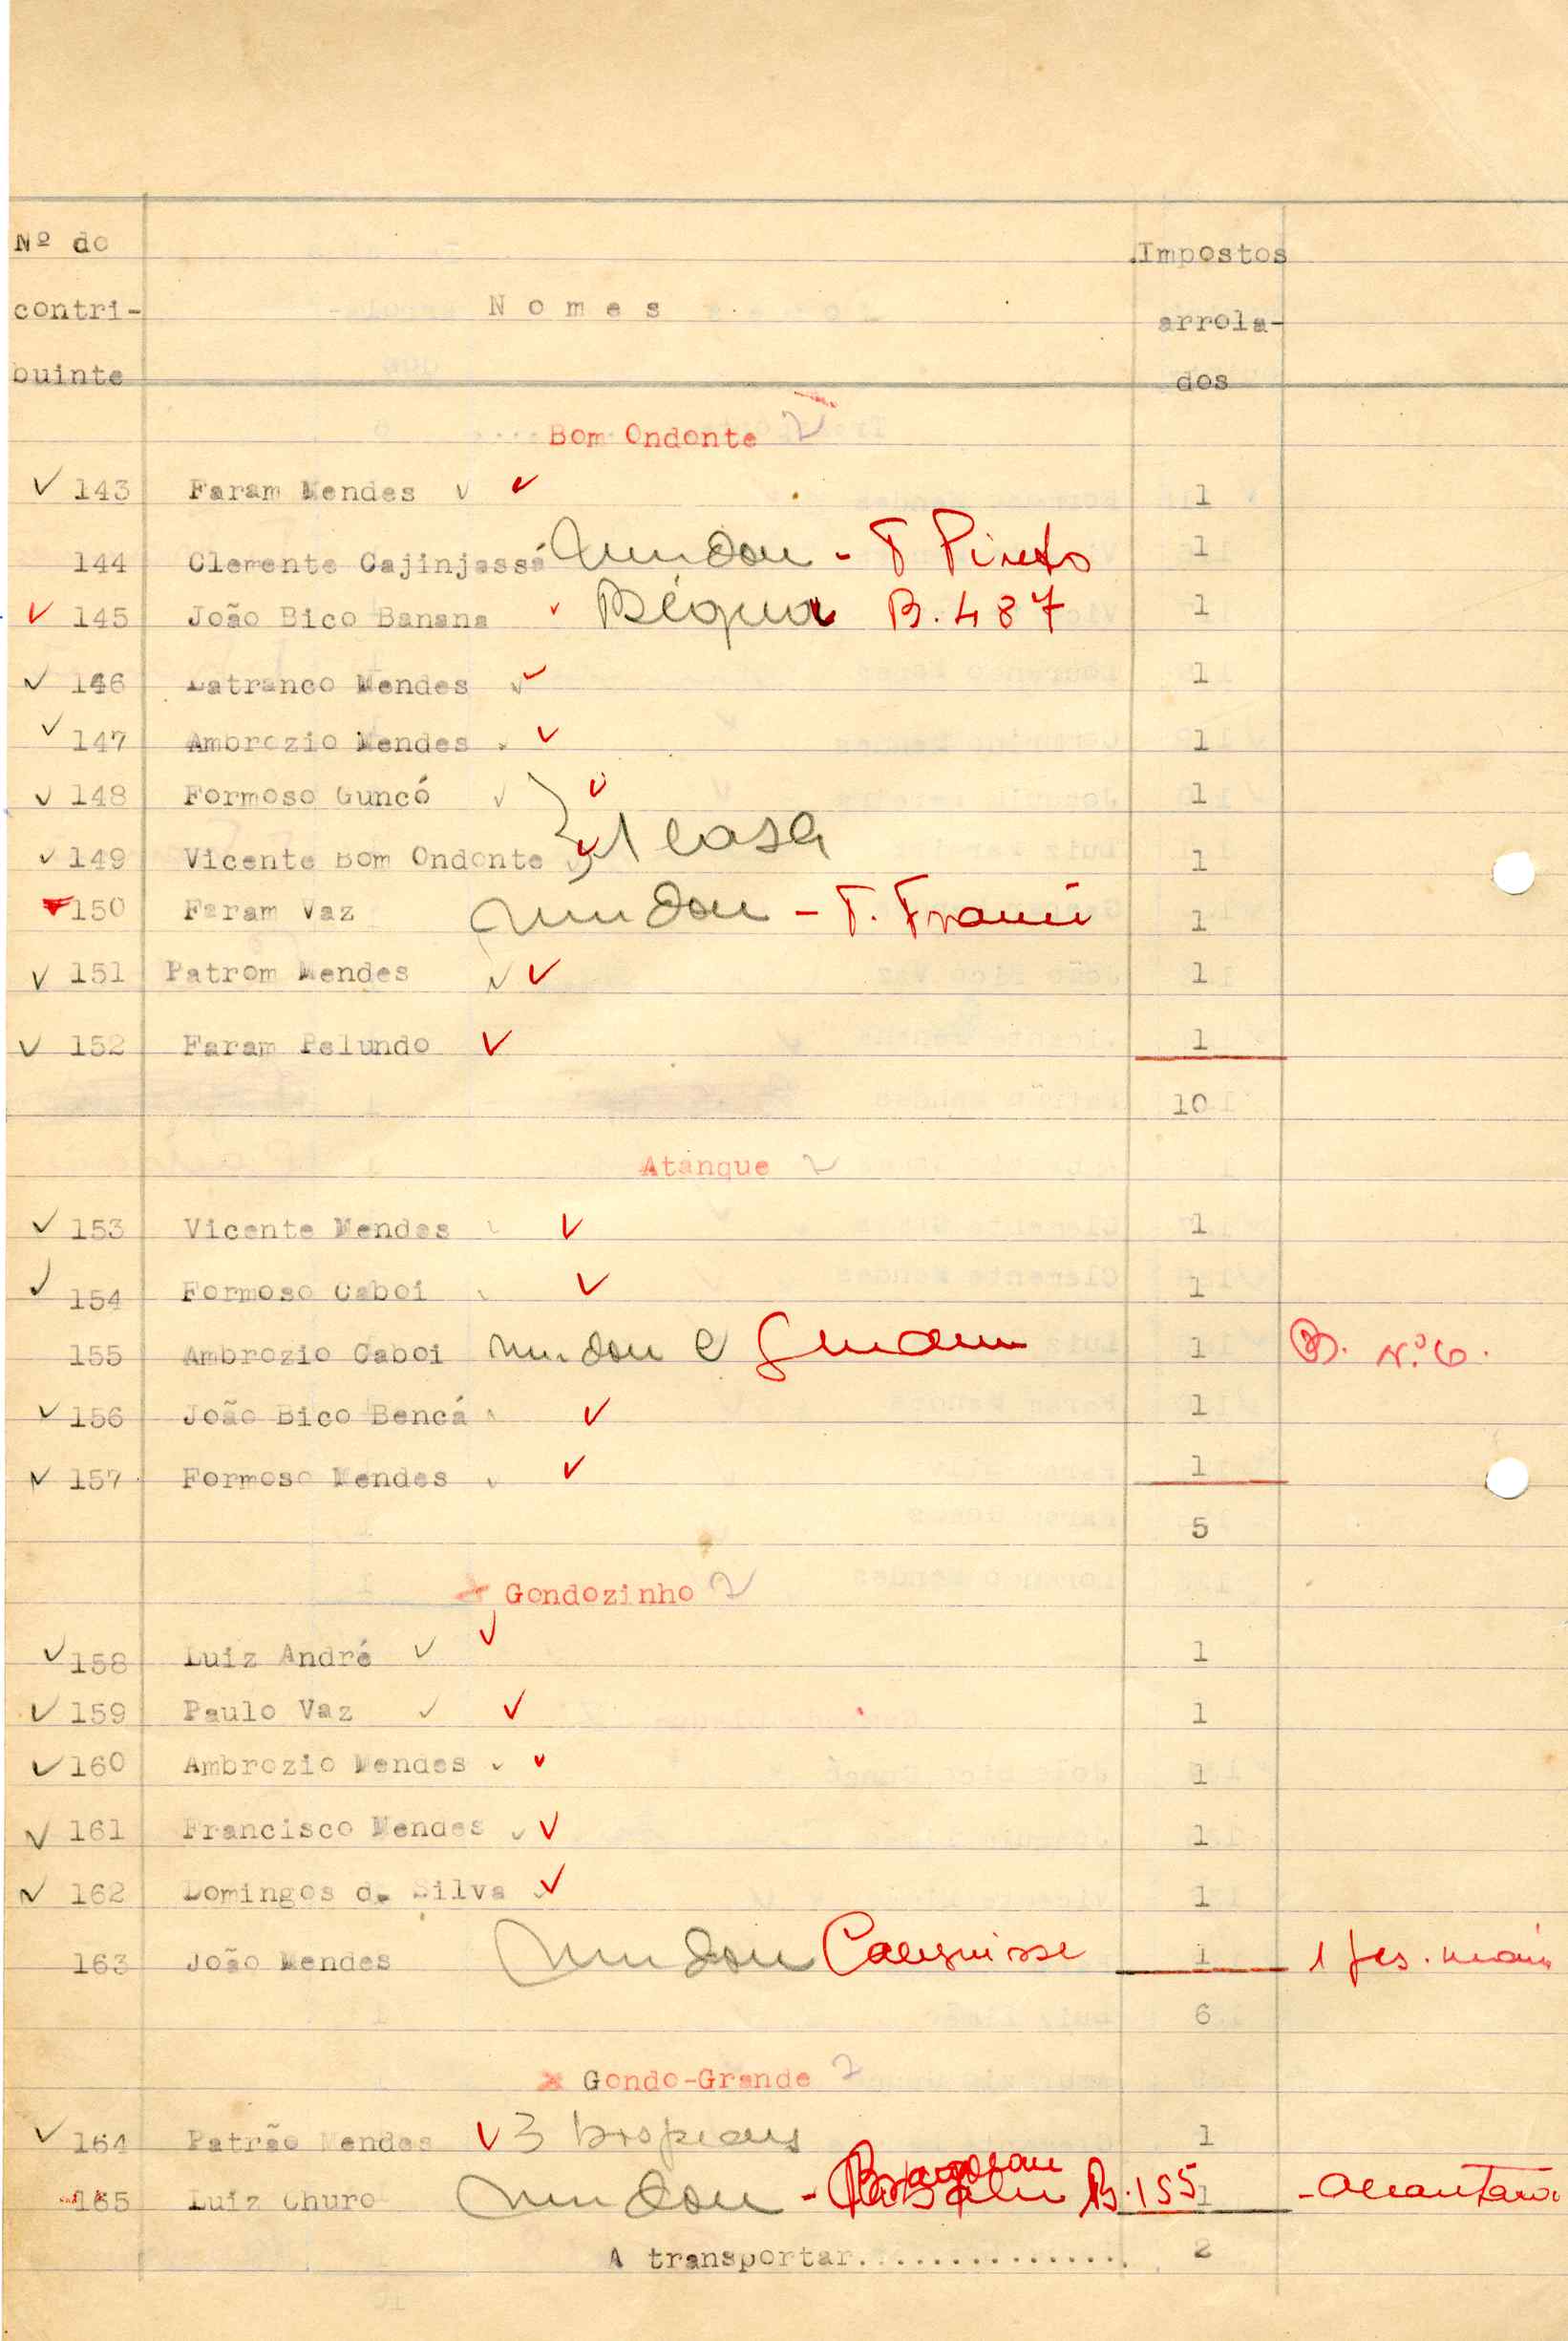 Nº do
contri-
buinte
N o m e s
Impostos
arrola-
dos
Bom Ondonte
143 Faram Mendes 1
144 Clemente Cajinjassá mudou - T Pinto 1
145 João Bico Banana B. 487 1
146 Latranco Mendes 1
147 Ambrozio Mendes 1
148 Formoso Guncó 1
1 casa
149 Vicente Bom Ondonte 1
150 Faram Vaz mudou - T. 1
151 Patrom Mendes 1
152 Faram Pelundo 1
10
Atanque
153 Vicente Mendes 1
154 Formoso Caboi 1
155 Ambrozio Caboi mudou 1 B. Nº 6.
156 João Bico Bencá 1
157 Formoso Mendes 1
5
Gondozinho
158 Luiz André 1
159 Paulo Vaz 1
160 Ambrozio Mendes 1
161 Francisco Mendes 1
162 Domingos da Silva 1
163 João Mendes mudou 1 1
6
Gondo-Grande
164 Patrão Mendes 3 1
165 Luiz Churo mudou - B. 155 1
A transportar............... 2